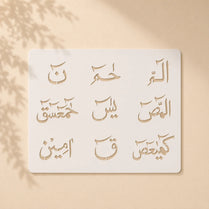 الٓمٓ حٰمٓ نٓ
الٓمّٓصٓ يٰسٓ حٰمٓعٓسٓقٓ
كٓهٰيٰعٓصٓ قٓ اٰمِيْن